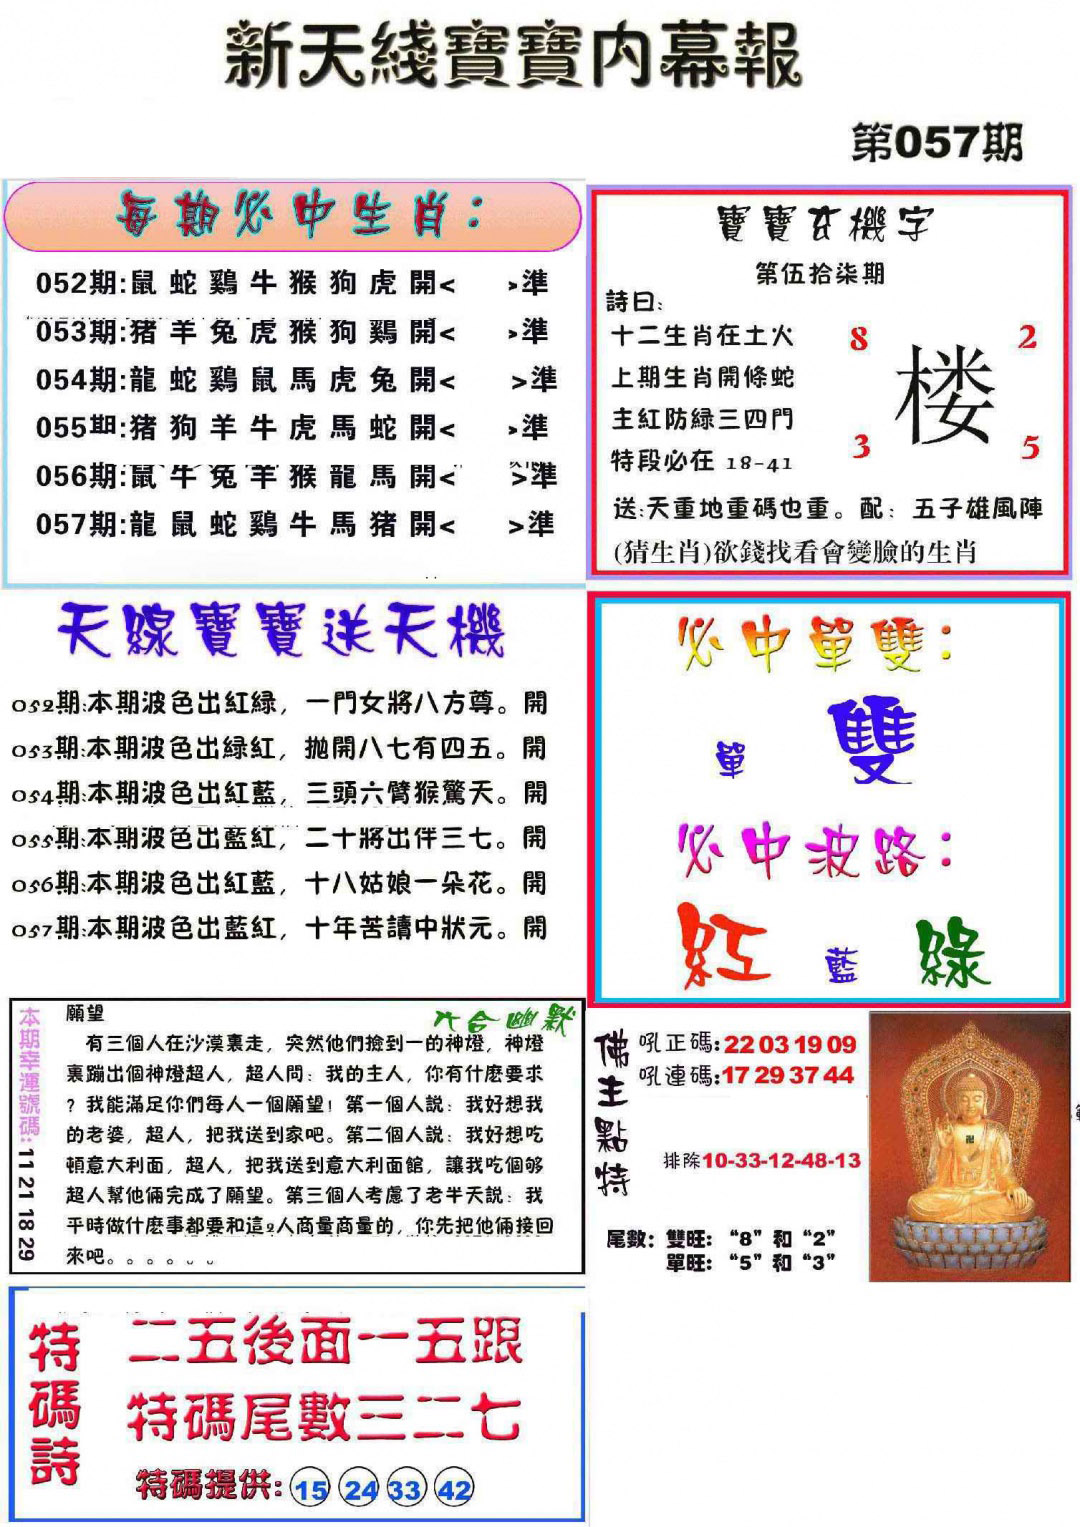 新天綫寶寶内幕報
第057期
每期必中生肖：
052期:鼠蛇鷄牛猴狗虎開< >準
053期:猪羊兔虎猴狗鷄開< >準
054期:龍蛇鷄鼠馬虎兔開< >準
055期:猪狗羊牛虎馬蛇開< >準
056期:鼠牛兔羊猴龍馬開< >準
057期:龍鼠蛇鷄牛馬猪開< >準
寶寶玄機字
第伍拾柒期
詩曰:
十二生肖在土火
上期生肖開條蛇
主紅防緑三四門
特段必在 18-41
8 2
楼
3 5
送:天重地重碼也重。配：五子雄風陣
(猜生肖)欲錢找看會變臉的生肖
天線寶寶送天機
052期:本期波色出紅緑，一門女將八方尊。開
053期:本期波色出緑紅，抛開八七有四五。開
054期:本期波色出紅藍，三頭六臂猴驚天。開
055期:本期波色出藍紅，二十將出伴三七。開
056期:本期波色出紅藍，十八姑娘一朵花。開
057期:本期波色出藍紅，十年苦讀中狀元。開
必中單雙：
單 雙
必中波路：
紅 藍 綠
本期幸運號碼:11 21 18 29
願望
六合幽默
有三個人在沙漠裏走，突然他們撿到一的神燈，神燈
裏蹦出個神燈超人，超人問：我的主人，你有什麽要求
？我能滿足你們每人一個願望！第一個人説：我好想我
的老婆，超人，把我送到家吧。第二個人説：我好想吃
頓意大利面，超人，把我送到意大利面館，讓我吃個够
超人幫他倆完成了願望。第三個人考慮了老半天説：我
平時做什麽事都要和這2人商量商量的，你先把他倆接回
來吧。。。。。。
佛主點特
吼正碼:22 03 19 09
吼連碼:17 29 37 44
排除10-33-12-48-13
尾數：雙旺：“8”和“2”
單旺：“5”和“3”
特碼詩
二五後面一五跟
特碼尾數三二七
特碼提供: 15 24 33 42